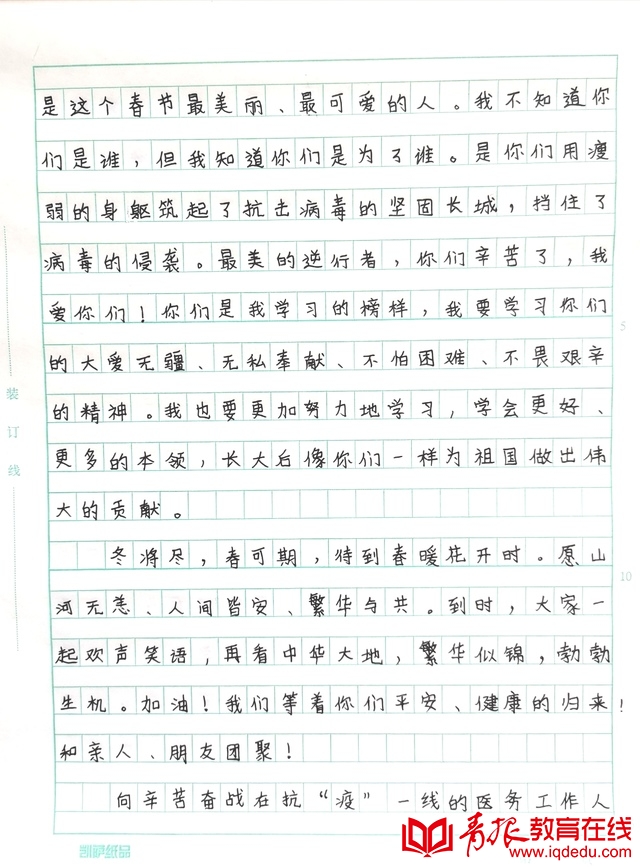 是这个春节最美丽、最可爱的人。我不知道你
们是谁，但我知道你们是为了谁。是你们用瘦
弱的身躯筑起了抗击病毒的坚固长城，挡住了
病毒的侵袭。最美的逆行者，你们辛苦了，我
爱你们！你们是我学习的榜样，我要学习你们
的大爱无疆、无私奉献、不怕困难、不畏艰辛
的精神。我也要更加努力地学习，学会更好、
更多的本领，长大后像你们一样为祖国做出伟
大的贡献。
冬将尽，春可期，待到春暖花开时。愿山
河无恙、人间皆安、繁华与共。到时，大家一
起欢声笑语，再看中华大地，繁华似锦，勃勃
生机。加油！我们等着你们平安、健康的归来！
和亲人、朋友团聚！
向辛苦奋战在抗“疫”一线的医务工作人
装订线
5
10
凯萨纸品
青报教育在线
www.iqdedu.com